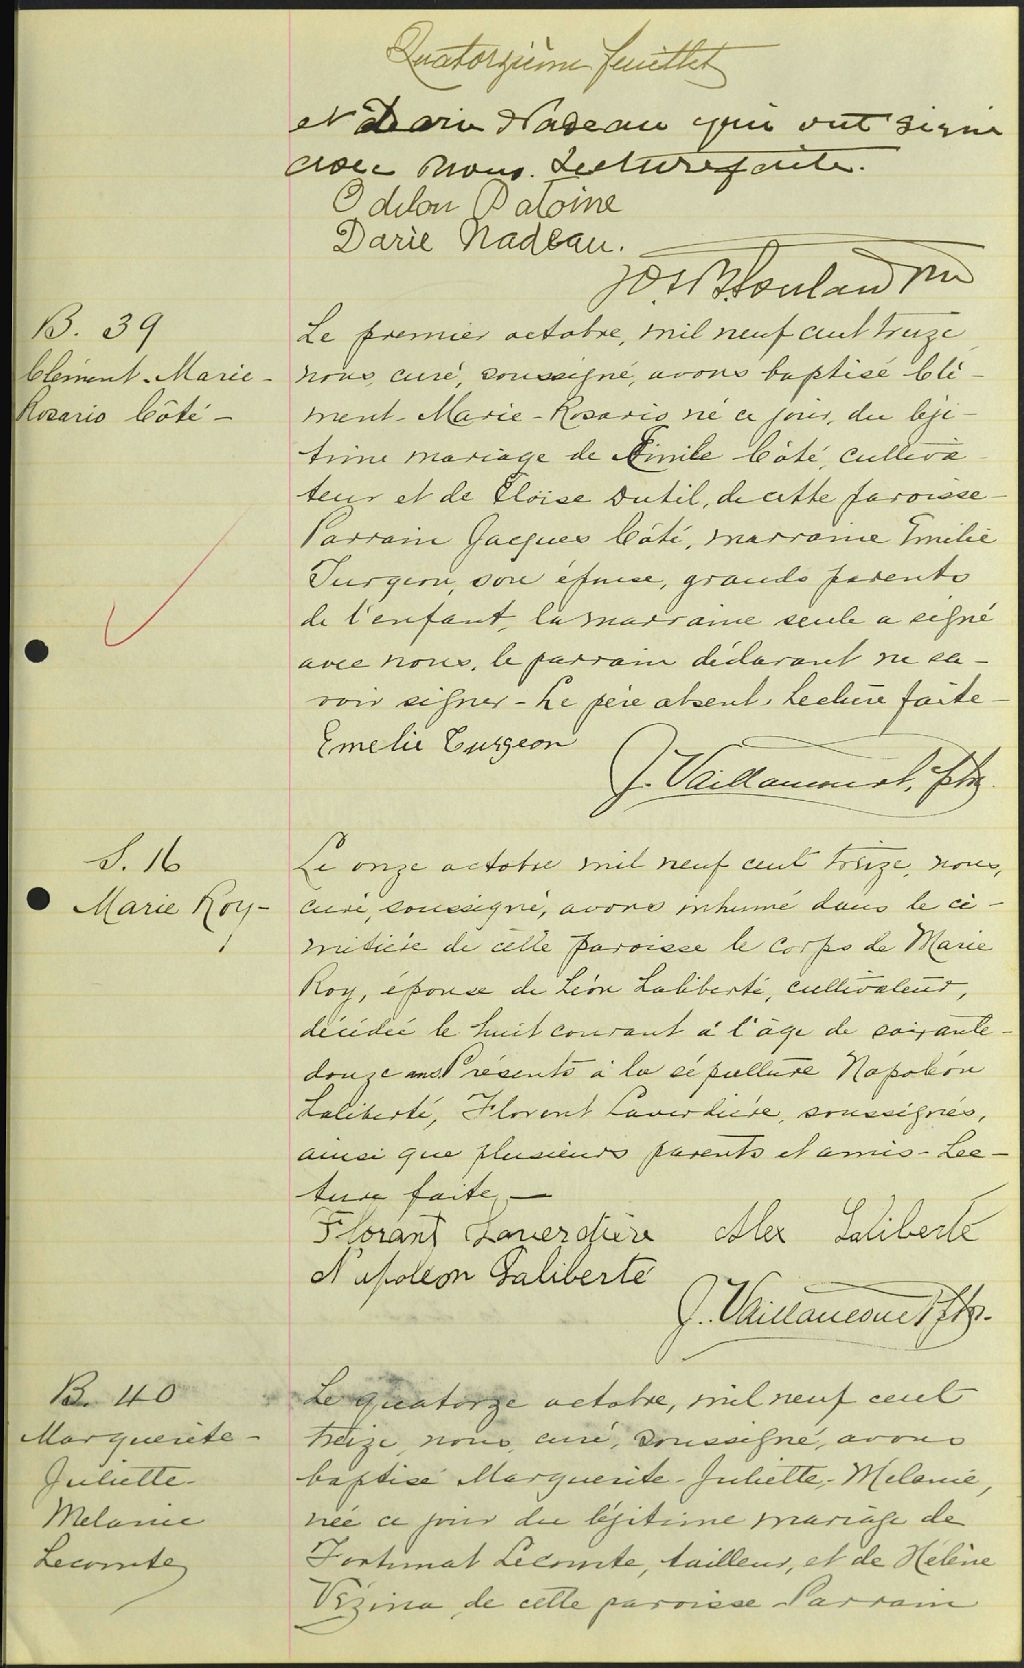 Quatorzième feuillet
et Darie Nadeau qui ont signé
avec nous. Lecture faite.
Odilon Patoine
Darie Nadeau.
B. 39
Clément-Marie-
Rosario Côté-
Le premier octobre, mil neuf cent treize
nous, curé, soussigné, avons baptisé Clé-
ment-Marie-Rosario né ce jour, du légi-
time mariage de Emile Côté, cultiva-
teur et de Eloise Dutil, de cette paroisse-
Parrain Jacques Côté, marraine Emilie
Turgeon, son épouse, grands parents
de l'enfant, la marraine seule a signé
avec nous, le parrain déclarant ne sa-
voir signer - Le père absent, Lecture faite-
Emelie Turgeon
J. Vaillancourt, ptre
S. 16
Marie Roy-
Le onze octobre mil neuf cent treize, nous,
curé, soussigné, avons inhumé dans le ci-
mitière de cette paroisse le corps de Marie
Roy, épouse de Léon Laliberté, cultivateur,
décédée le huit courant à l'âge de soixante-
douze ans. Présents à la sépulture Napoléon
Laliberté, Florent Laverdière, soussignés,
ainsi que plusieurs parents et amis - Lec-
ture faite, —
Florant Laverdière Alex Laliberté
Napoléon Laliberté
J. Vaillancourt ptre.
B. 40
Marguerite-
Juliette-
Melanie
Lecomte
Le quatorze octobre, mil neuf cent
treize, nous, curé, soussigné, avons
baptisé Marguerite-Juliette-Melanie,
née ce jour du légitime mariage de
Fortunat Lecomte, tailleur, et de Hélène
Vézina de cette paroisse Parrain